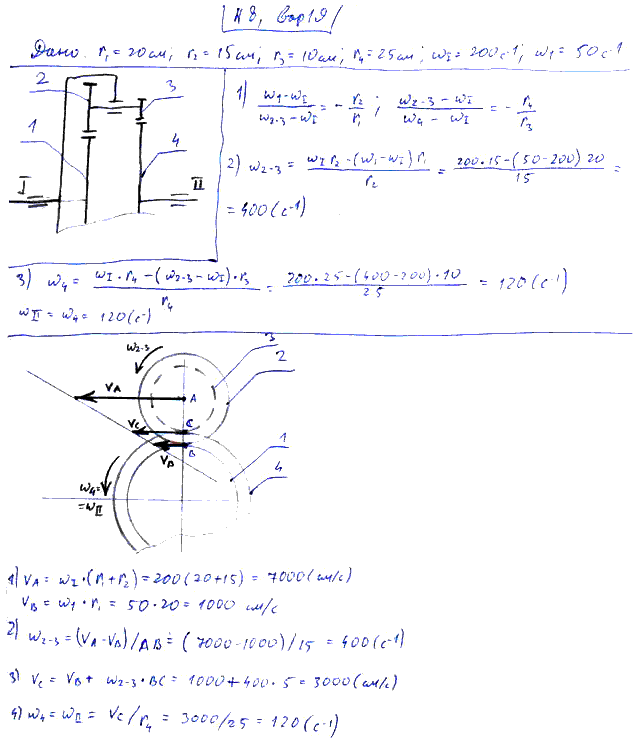 №8, вар 19
Дано. r₁ = 20 см; r₂ = 15 см; r₃ = 10 см; r₄ = 25 см; ω_I = 200 с⁻¹; ω₁ = 50 с⁻¹
2 3
1 4
I II
1) (ω₁-ω_I)/(ω₂₋₃-ω_I) = - r₂/r₁ ; (ω₂₋₃-ω_I)/(ω₄-ω_I) = - r₄/r₃
2) ω₂₋₃ = (ω_I r₂ - (ω₁-ω_I) r₁)/r₂ = (200·15-(50-200) 20)/15 =
= 400 (с⁻¹)
3) ω₄ = (ω_I·r₄-(ω₂₋₃-ω_I)·r₃)/r₄ = (200·25-(400-200)·10)/25 = 120 (с⁻¹)
ω_II = ω₄ = 120 (с⁻)
ω₂₋₃ 3 2
V_A A
V_C C
V_B B 1
ω₄= 4
=ω_II
1) V_A = ω_I·(r₁+r₂) = 200(20+15) = 7000 (см/с)
V_B = ω₁·r₁ = 50·20 = 1000 см/с
2) ω₂₋₃ = (V_A-V_B)/AB = (7000-1000)/15 = 400 (с⁻¹)
3) V_C = V_B + ω₂₋₃·BC = 1000+400·5 = 3000 (см/с)
4) ω₄ = ω_II = V_C/r₄ = 3000/25 = 120 (с⁻¹)